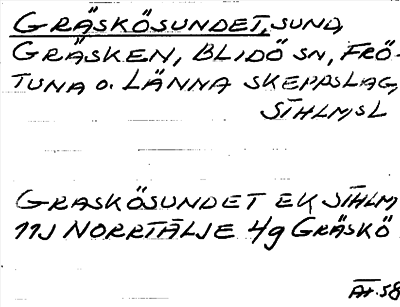 GRÄSKÖSUNDET, SUND,
GRÄSKEN, BLIDÖ SN, FRÖ-
TUNA O. LÄNNA SKEPPSLAG,
STHLMSL
GRASKÖSUNDET EK STHLM
11J NORRTÄLJE 4g GRÄSKÖ
ÄT. 58